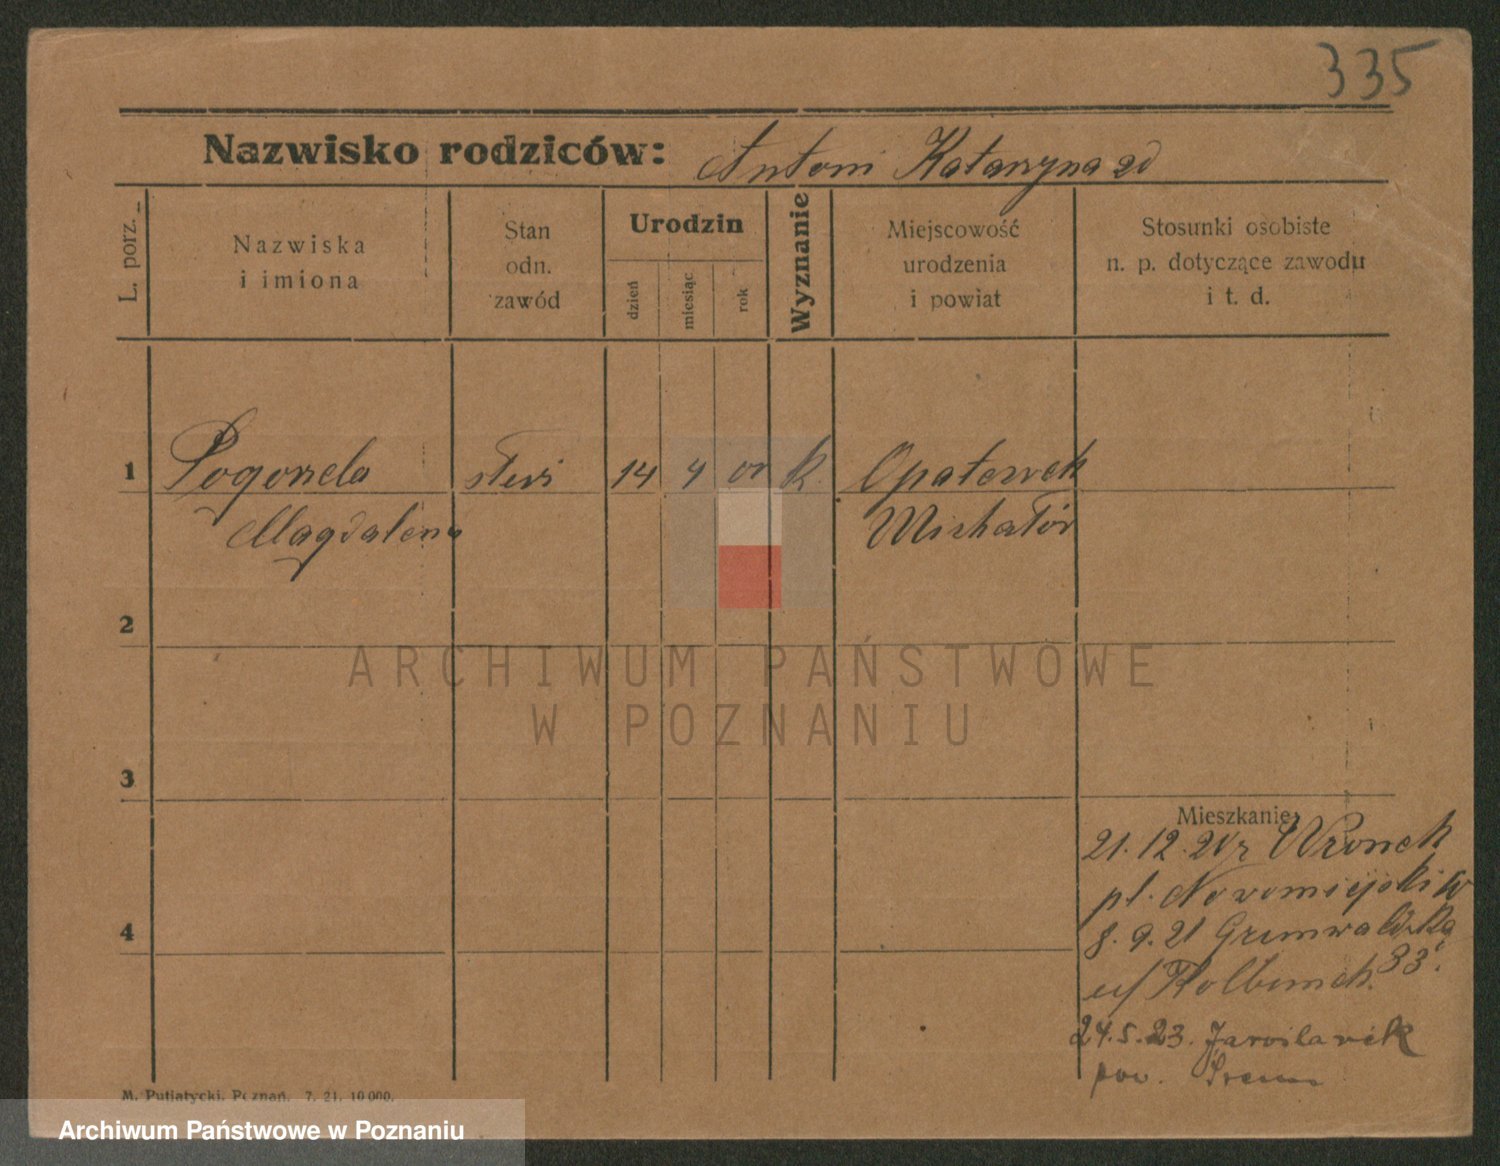 335
Nazwisko rodziców: Antoni Katarzyna zd
L. porz.
Nazwiska
i imiona
Stan
odn.
zawód
Urodzin
dzień
miesiąc
rok
Wyznanie
Miejscowość
urodzenia
i powiat
Stosunki osobiste
n. p. dotyczące zawodu
i t. d.
1 Pogorzela 14 4 k. Opatówek
Magdalena
2
ARCHIWUM PAŃSTWOWE
W POZNANIU
3
Mieszkanie:
21.12.21 r Wronek
pl. Nowomiejski
4
8.9.21 Grunwaldzka
33.
24.5.23. Jarosławek
pow. Śrem
M. Putiatycki, Poznań. 7. 21. 10 000.
Archiwum Państwowe w Poznaniu